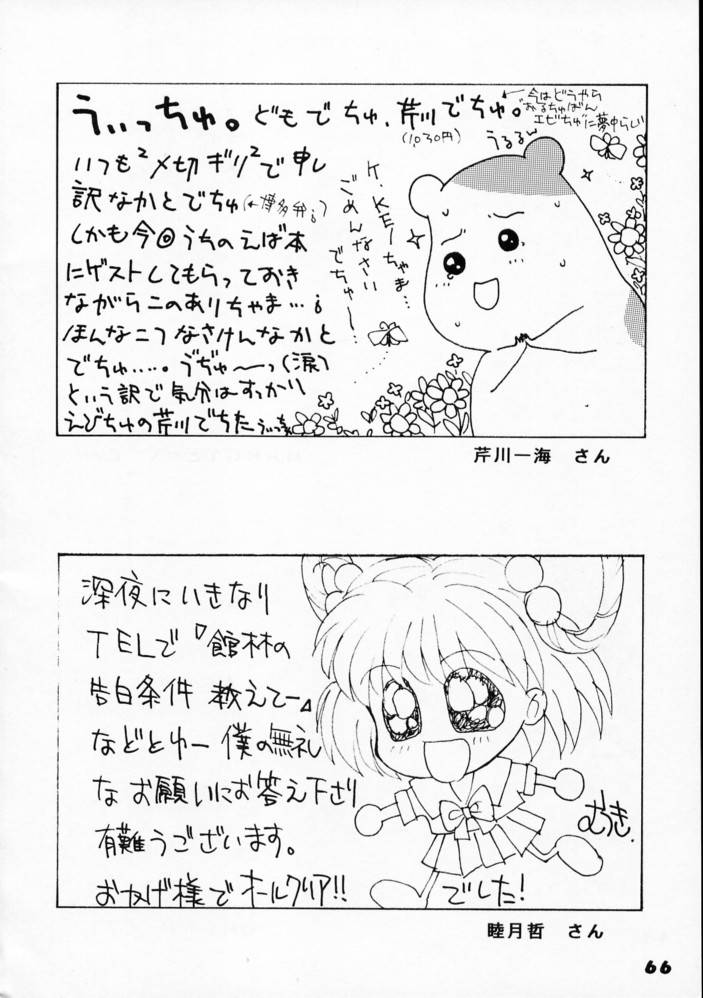 うぃっちゅ。どもでちゅ、芹川でちゅ。
(1030円)
←今はどうやら
おるちゅばん
エビちゅに夢中らしい
うるるん
いつも²〆切ギリ²で申し
訳なかとでちゅ(←博多弁。)
しかも今回うちのえば本
にゲストしてもらっておき
ながらこのありちゃま…。
ほんなこつなさけんなかと
でちゅ….。うぢゅ〜っ(涙)
という訳で気分はすっかり
えびちゅの芹川でちた
K.KEIちゃま…
ごめんなさい
でちゅ〜…
芹川一海 さん
深夜にいきなり
TELで『館林の
告白条件 教えてー』
などとゆー僕の無礼
なお願いにお答え下さり
有難うございます。
おかげ様でオールクリア!!でした!
むつき.
睦月哲 さん
66